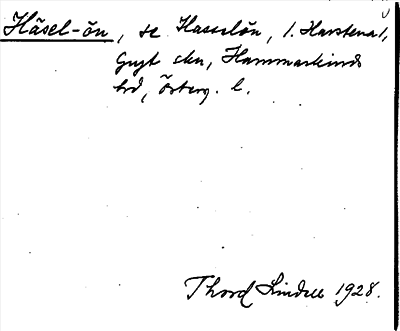 Häsel-ön, se Hasselön, 1. Harstena 1,
Gryt skn, Hammarkinds
hd, Österg. l.
Thord Lindé 1928.